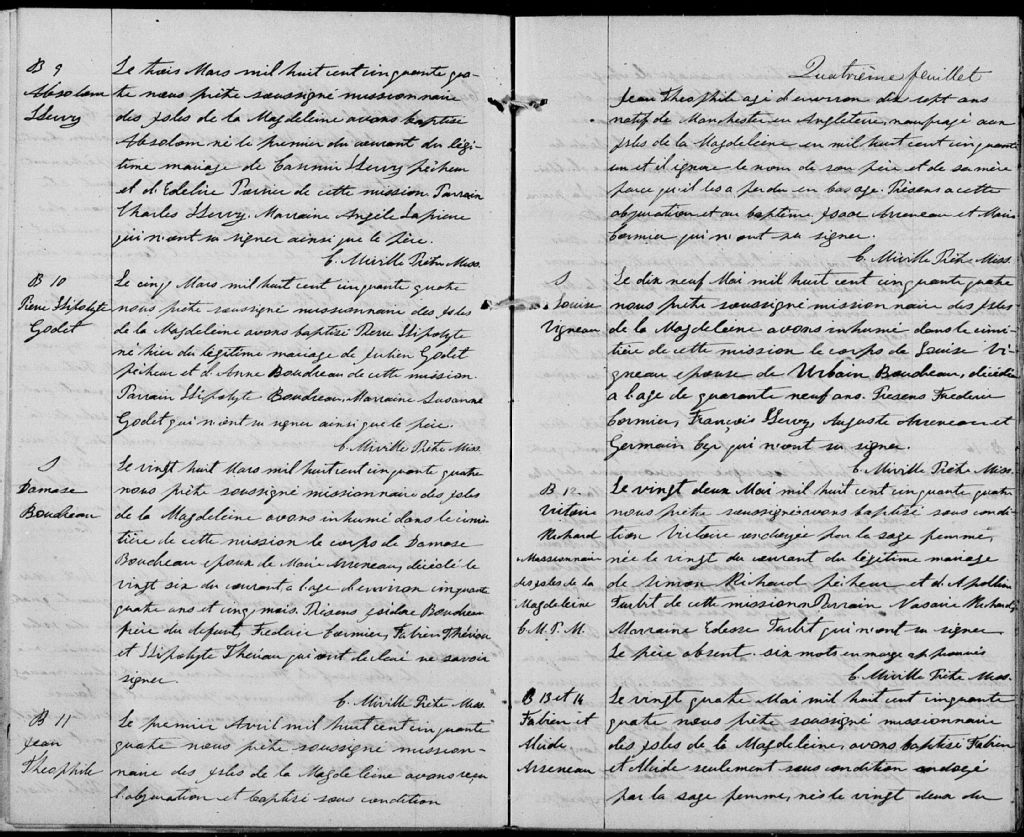 B 9
Absolom
Hervy
Le trois Mars mil huit cent cinquante qua-
tre nous prêtre soussigné missionnaire
des Isles de la Magdeleine avons baptisé
Absolom né le premier du courant du légi-
time mariage de Casimir Hervy pêcheur
et d'Edelire Poirier de cette mission. Parrain
Charles Hervy. Marraine Angèle Lapierre
qui n'ont su signer ainsi que le père.
C. Miville Prêtre Miss.
B 10
Pierre Hipolyte
Godet
Le cinq Mars mil huit cent cinquante quatre
nous prêtre soussigné missionnaire des Isles
de la Magdeleine avons baptisé Pierre Hipolyte
né hier du légitime mariage de Julien Godet
pêcheur et d'Anne Boudreau de cette mission.
Parrain Hipolyte Boudreau, Marraine Susanne
Godet qui n'ont su signer ainsi que le père.
C. Miville Prêtre Miss.
S
Damase
Boudreau
Le vingt huit Mars mil huit cent cinquante quatre
nous prêtre soussigné missionnaire des Isles
de la Magdeleine avons inhumé dans le cime-
tière de cette mission le corps de Damase
Boudreau époux de Marie Arseneau, décédé le
vingt six du courant, a l'age d'environ cinquante
quatre ans et cinq mois. Présens Isidore Boudreau
frère du défunt, Frederic Cormier, Fabien Thériau
et Hipolyte Theriau qui ont declaré ne savoir
signer.
C. Miville Prêtre Miss.
B 11
Jean
Theophile
Le premier Avril mil huit cent cinquante
quatre nous prêtre soussigné mission-
naire des Isles de la Magdeleine avons reçu
l'abjuration et baptisé sous condition
Quatrième feuillet
Jean Theophile agé d'environ dix sept ans
natif de Manchester en Angleterre, naufragé aux
Isles de la Magdeleine en mil huit cent cinquante
un et il ignore le nom de son père et de sa mère
parce qu'il les a perdu en bas age. Présens a cette
abjuration et au baptême Isaac Arseneau et Marie
Cormier qui n'ont su signer.
C. Miville Prêtre Miss.
S
Louise
Vigneau
Le dix neuf Mai mil huit cent cinquante quatre
nous prêtre soussigné missionnaire des Isles
de la Magdeleine avons inhumé dans le cime-
tière de cette mission le corps de Louise Vi-
gneau epouse de Urbain Boudreau, décédée
a l'age de quarante neuf ans. Presens Frederic
Cormier, François Hervy, Auguste Arseneau et
Germain Cyr qui n'ont su signer.
C. Miville Prêtre Miss.
B 12
Victoire
Richard
Missionnaire
des Isles de la
Magdeleine
C. M. P. M.
Le vingt deux Mai mil huit cent cinquante quatre
nous prêtre soussigné avons baptisé sous condi-
tion Victoire ondoyée par la sage femme,
née le vingt du courant du légitime mariage
de Simon Richard pêcheur et d'Apolline
Turbit de cette mission Parrain Nasaire Richard,
Marraine Edesse Turbit qui n'ont su signer
Le père absent. six mots en marge approuvés
C. Miville Prêtre Miss.
B 13 et 14
Fabien et
Elside
Arseneau
Le vingt quatre Mai mil huit cent cinquante
quatre nous prêtre soussigné missionnaire
des Isles de la Magdeleine, avons baptisé Fabien
et seulement sous condition ondoyé
par la sage femme, nés le vingt deux du